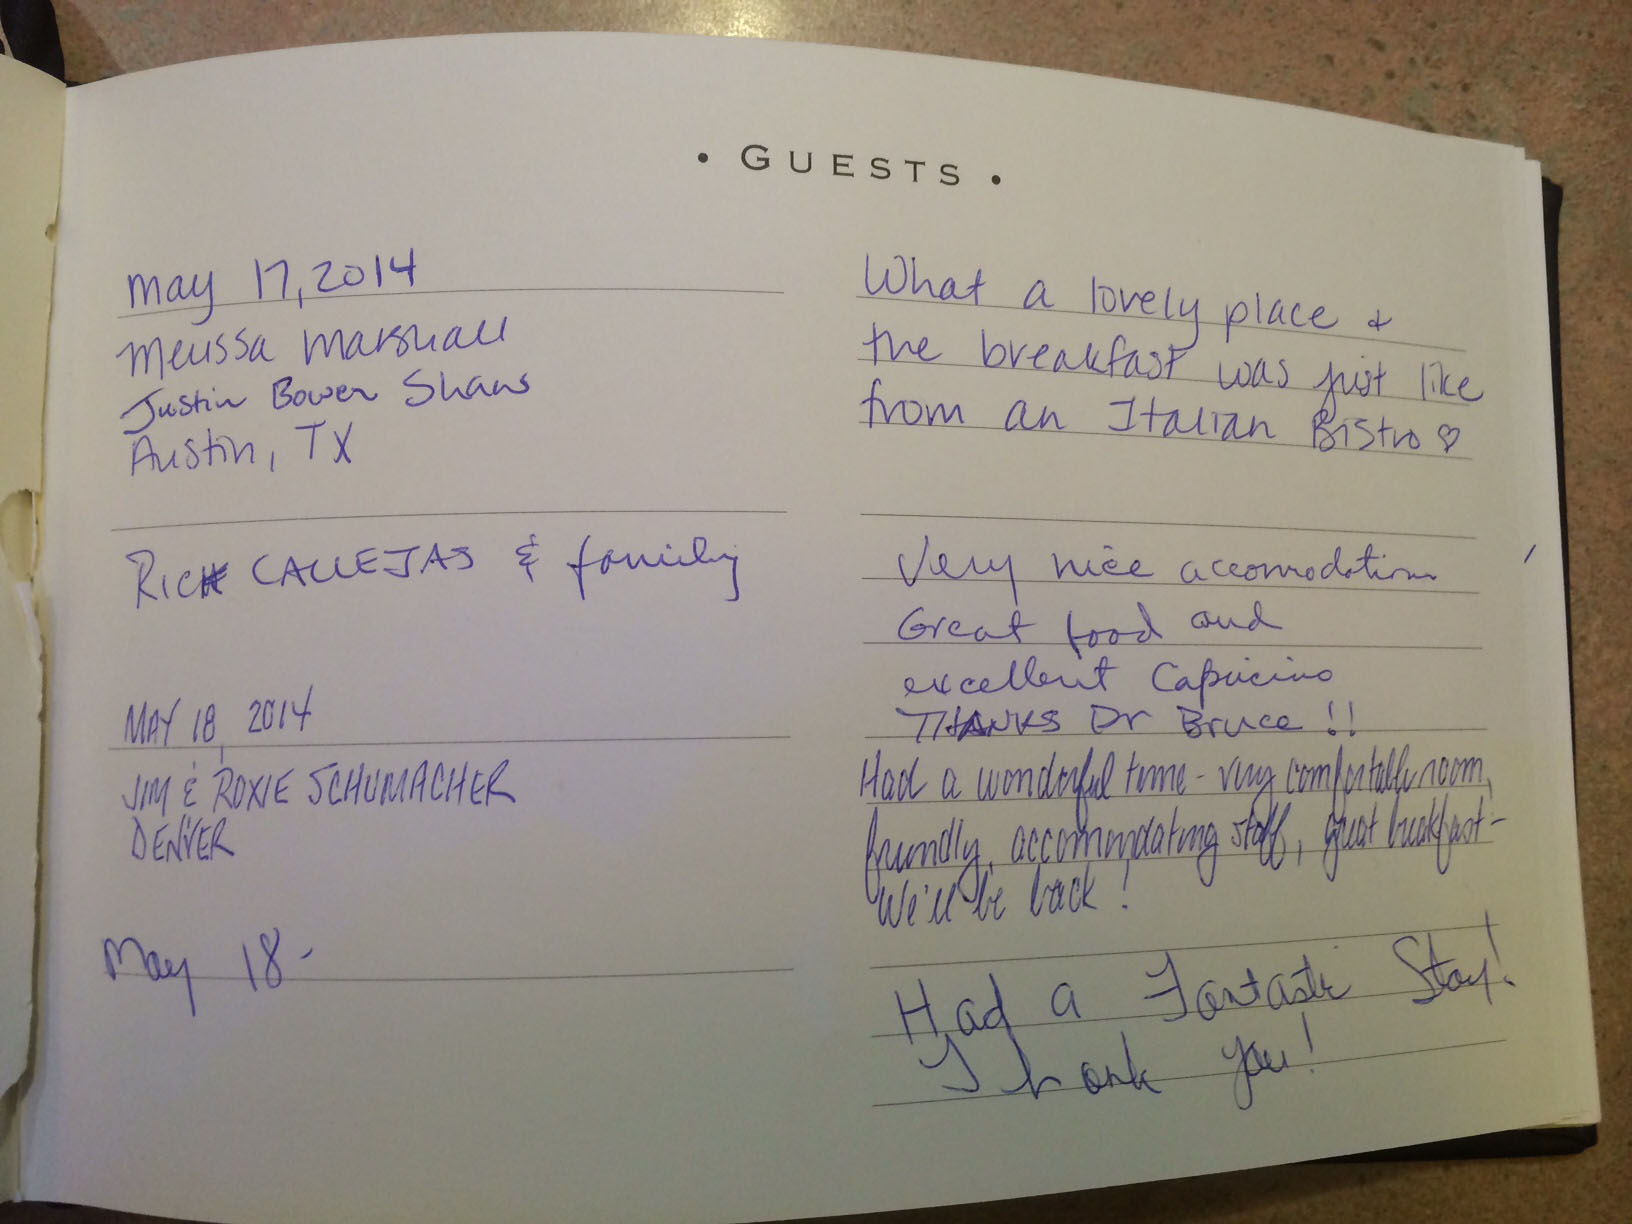 • GUESTS •
May 17, 2014
Melissa Marshall
Justin Bower Shaw
Austin, TX
What a lovely place &
the breakfast was just like
from an Italian Bistro ♡
RICH CALLEJAS & family
Very nice accomodation
Great food and
excellent Capucino
THANKS Dr Bruce !!
MAY 18, 2014
JIM & ROXIE SCHUMACHER
DENVER
Had a wonderful time - very comfortable room,
friendly, accommodating staff, great breakfast -
We'll be back!
May 18-
Had a Fantastic Stay!
Thank you!